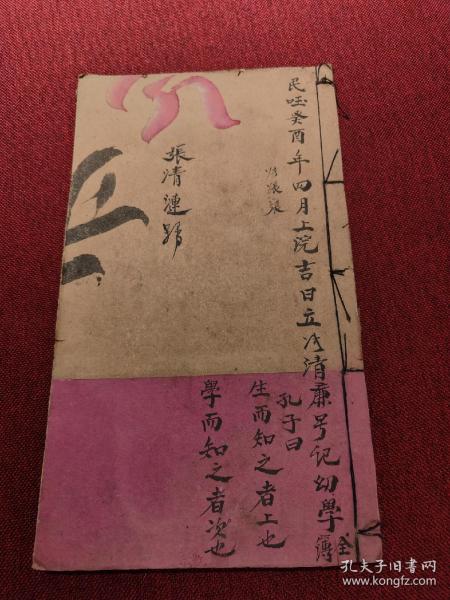 民国癸酉年四月上浣吉日立 清廉号记幼學
全簿
張清漣號
孔子曰
生而知之者上也
學而知之者次也
孔夫子旧书网
www.kongfz.com